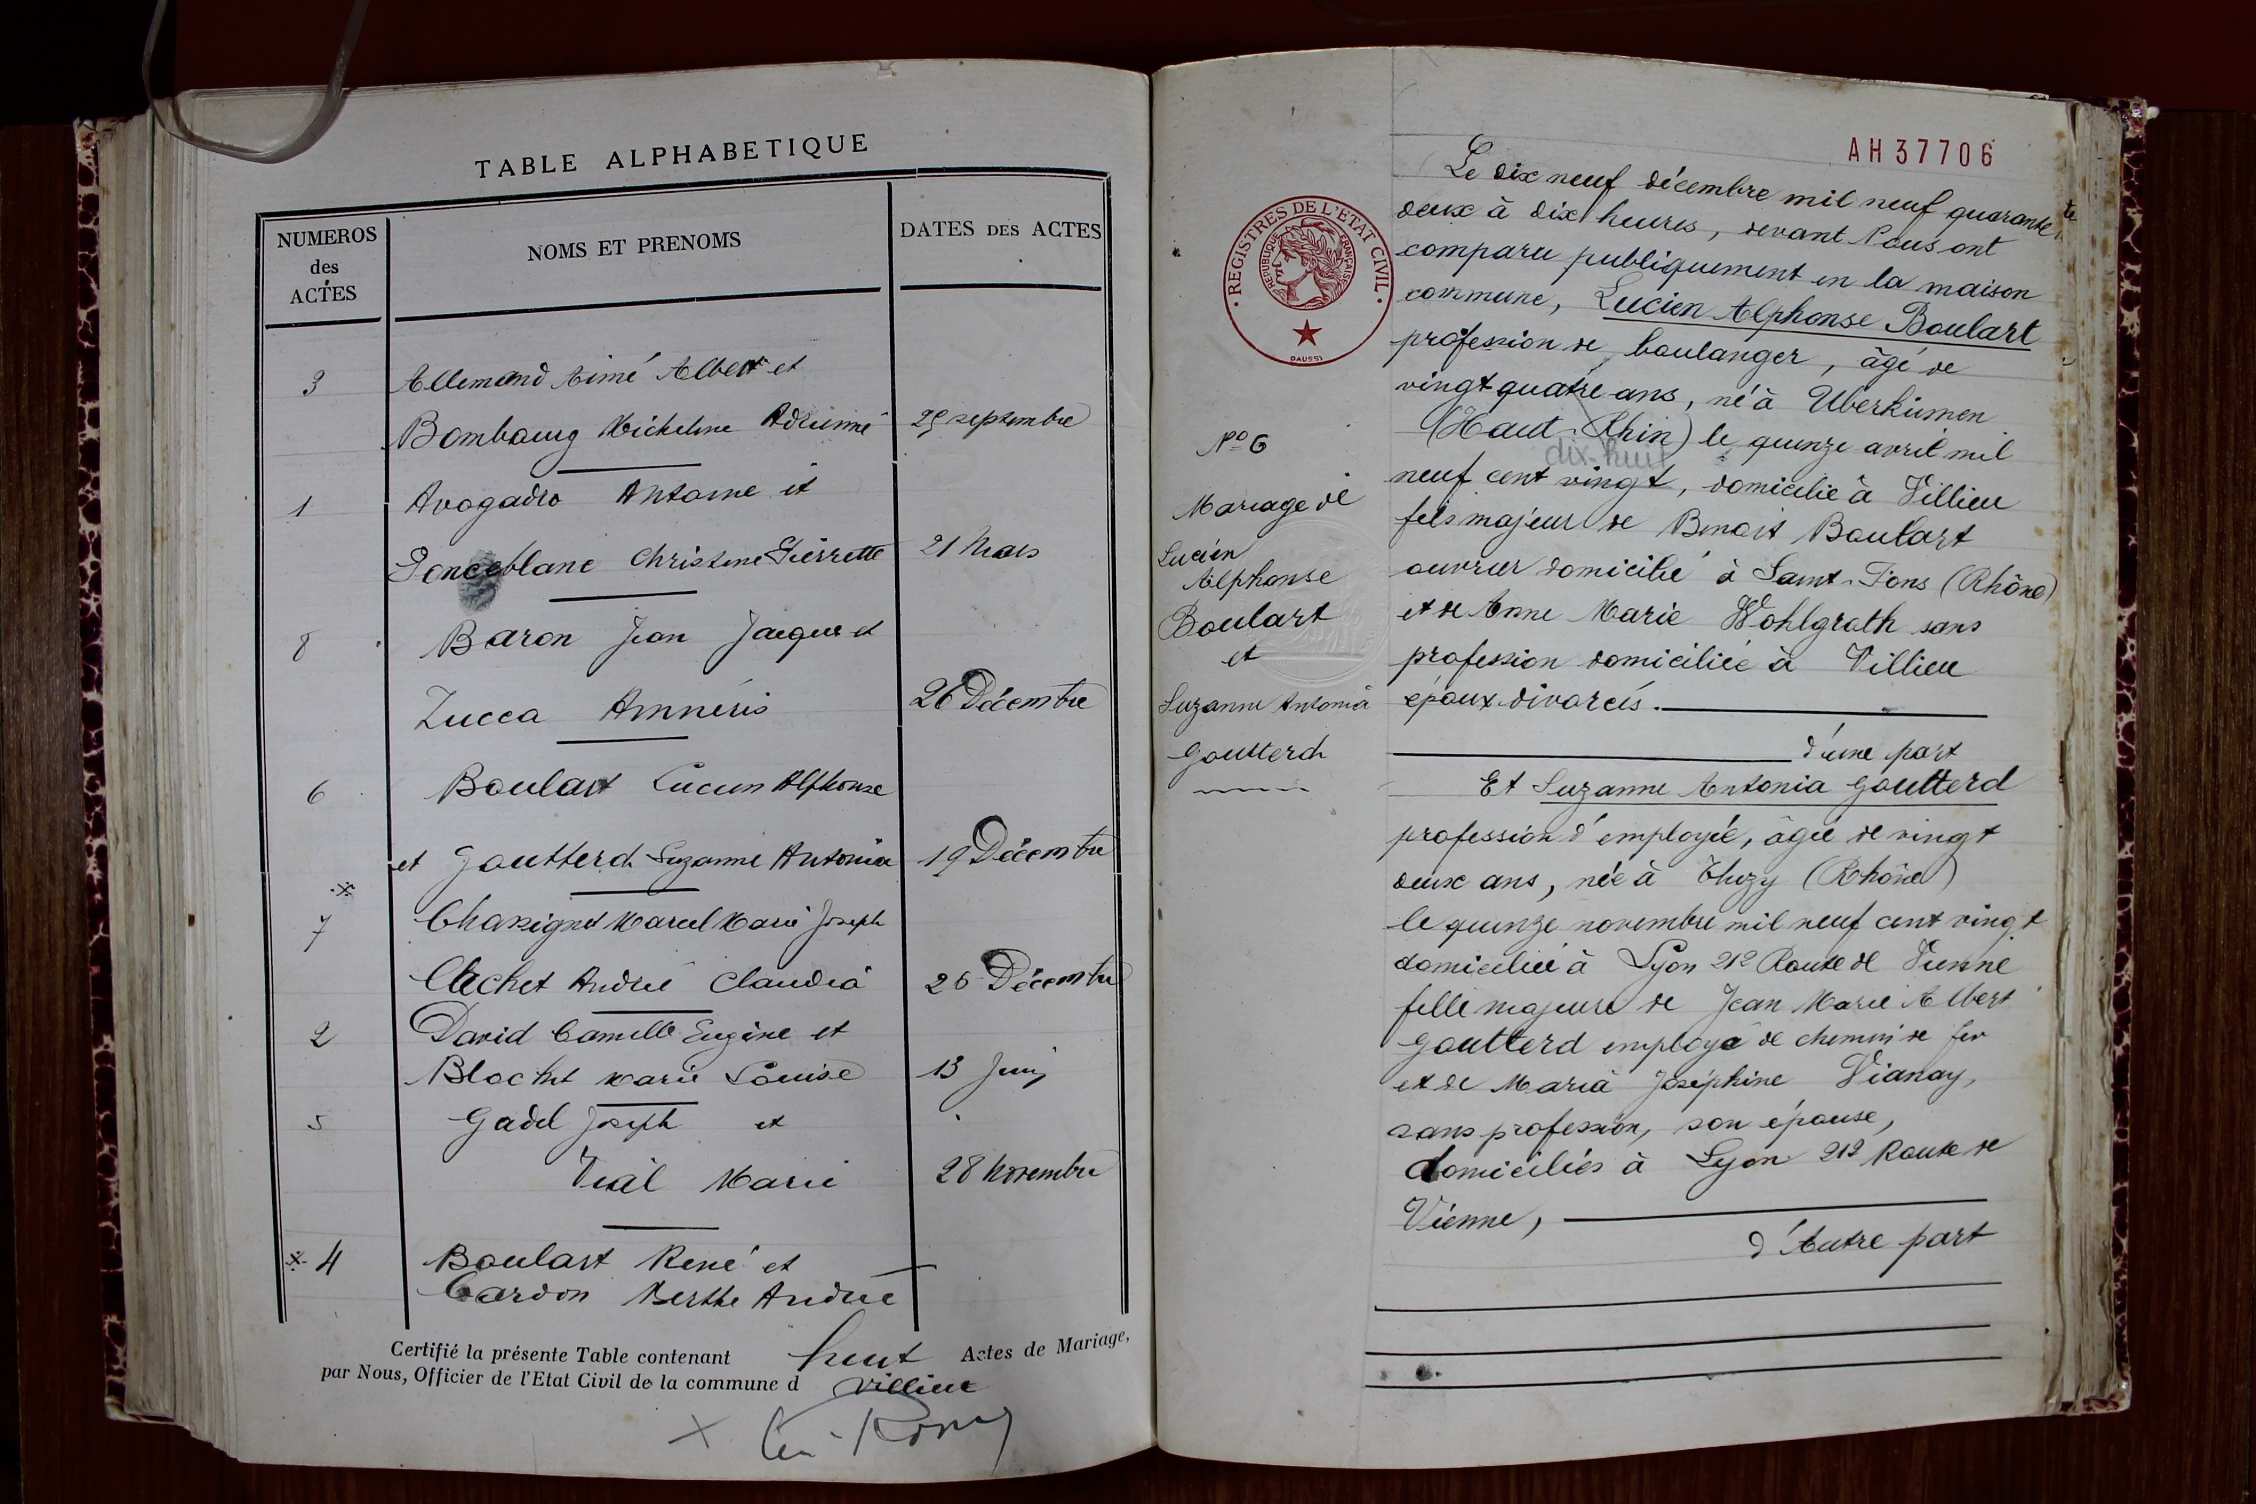 TABLE ALPHABETIQUE
NUMEROS
des
ACTES
NOMS ET PRENOMS
DATES DES ACTES
3
Allemand Aimé Albert et
Bombourg Micheline Adrienne
29 septembre
1
Avogadro Antoine et
Ponceblanc Christine Pierrette
21 Mars
8
Baron Jean Jacques et
Zucca Amnéris
26 Décembre
6
Boulart Lucien Alphonse
et Goutterd Suzanne Antonia
19 Décembre
7
Chassignet Marcel Marie Joseph
Clechet Andrée Claudia
26 Décembre
2
David Camille Eugène et
Blochet Marie Louise
13 Juin
5
Gadel Joseph et
Vial Marie
28 Novembre
x 4
Boulart René et
Cardon Berthe Andrée
Certifié la présente Table contenant huit Actes de Mariage,
par Nous, Officier de l'Etat Civil de la commune d Villieu
REGISTRES DE L'ETAT CIVIL
REPUBLIQUE FRANÇAISE
DAUSSI
N° 6
Mariage de
Lucien
Alphonse
Boulart
et
Suzanne Antonia
Goutterd
AH37706
Le dix neuf décembre mil neuf quarante
deux à dix heures, devant Nous ont
comparu publiquement en la maison
commune, Lucien Alphonse Boulart
profession de boulanger, âgé de
vingt quatre ans, né à Uberkümen
(Haut-Rhin) le quinze avril mil
dix-huit
neuf cent vingt, domicilié à Villieu
fils majeur de Benoit Boulart
ouvrier domicilié à Saint-Fons (Rhône)
et de Anne Marie Wohlgroth sans
profession domiciliée à Villieu
époux divorcés.
d'une part
Et Suzanne Antonia Goutterd
profession d'employée, âgée de vingt
deux ans, née à Thizy (Rhône)
le quinze novembre mil neuf cent vingt
domiciliée à Lyon 212 Route de Vienne
fille majeure de Jean Marie Albert
Goutterd employé de chemin de fer
et de Maria Joséphine Vianay,
sans profession, son épouse,
domiciliés à Lyon 212 Route de
Vienne,
d'Autre part